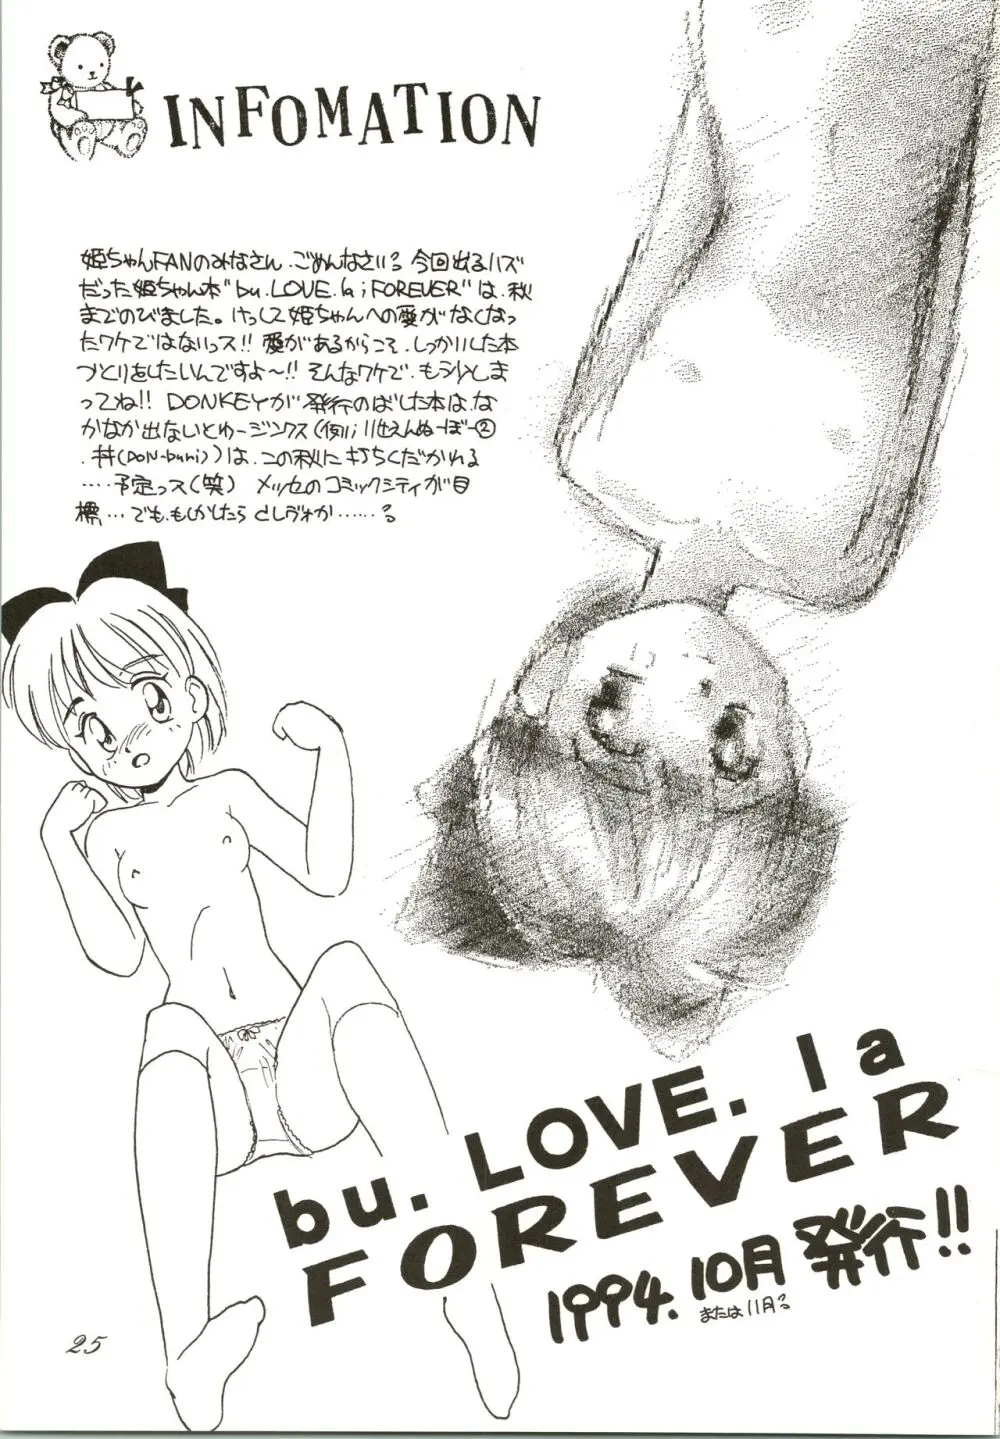 INFOMATION
姫ちゃんFANのみなさん、ごめんなさい。今回出るハズ
だった姫ちゃん本"bu.LOVE.la;FOREVER"は、秋
までのびました。けっして姫ちゃんへの愛がなくなっ
たワケではないっス!!愛があるからこそ、しっかりした本
づくりをしたいんですよ〜!!そんなワケで、も少しま
ってね!!DONKEYが発行のばした本は、な
かなか出ないとゆージンクス(例;
丼(DON-buri))は、この秋に打ちくだかれる
‥‥予定っス(笑) メッセのコミックシティが目
標…でも、もしかしたら としヴォか……
bu. LOVE. la
FOREVER
1994.10月 発行!!
または11月
25